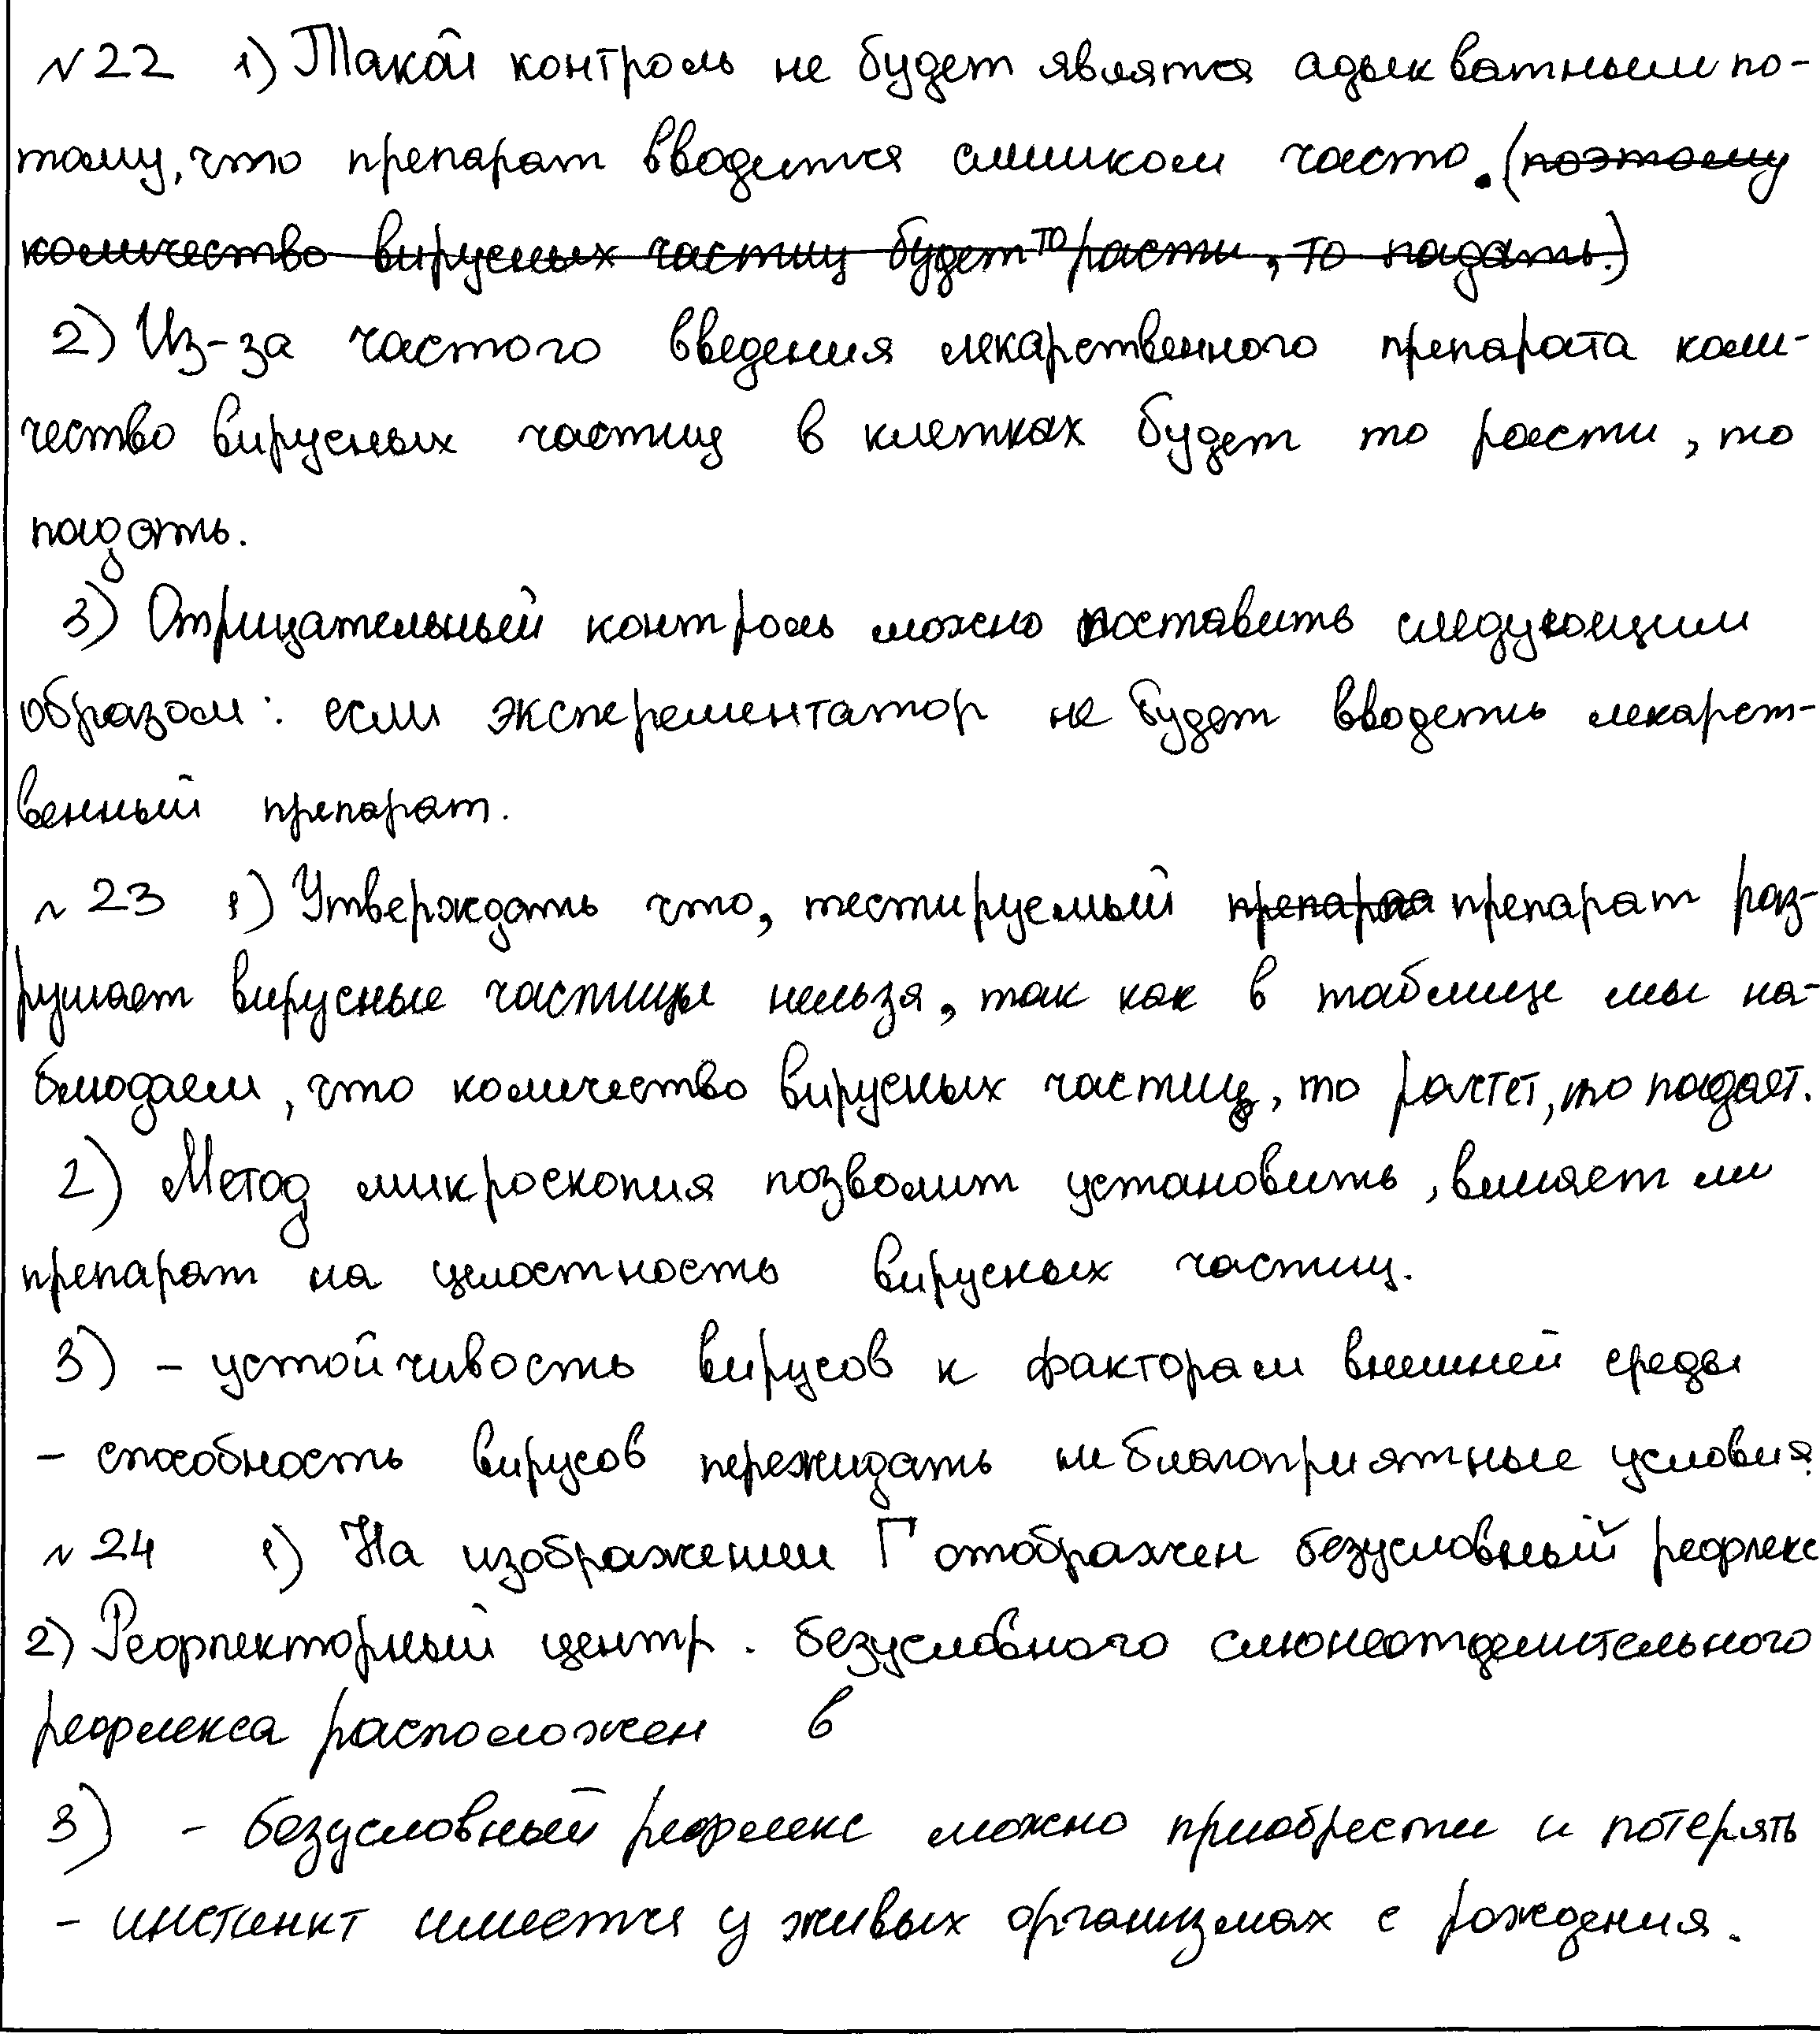 №22 1) Такой контроль не будет являтся адыкватным по-
тому, что препарат вводится слишком часто. (поэтому
количество вирусных частиц будет то расти, то падать.)
2) Из-за частого введения лекарственного препарата коли-
чество вирусных частиц в клетках будет то расти, то
падать.
3) Отрицательный контроль можно поставить следующим
образом: если эксперементатор не будет вводить лекарст-
венный препарат.
№23 1) Утверждать что, тестируемый препараа препарат раз-
рушает вирусные частицы нельзя, так как в таблице мы на-
блюдаем, что количество вирусных частиц, то растет, то падает.
2) Метод микроскопия позволит установить, влияет ли
препарат на целостность вирусных частиц.
3) - устойчивость вирусов к факторам внешней среды
- способность вирусов пережидать неблагоприятные условия.
№24 1) На изображении Г отображен безусловный рефлекс
2) Рефлекторный центр . безусловного слюноотделительного
рефлекса расположен в
3) - безусловный рефлекс можно приобрести и потерять
- инстинкт имеется у живых организмах с рождения.